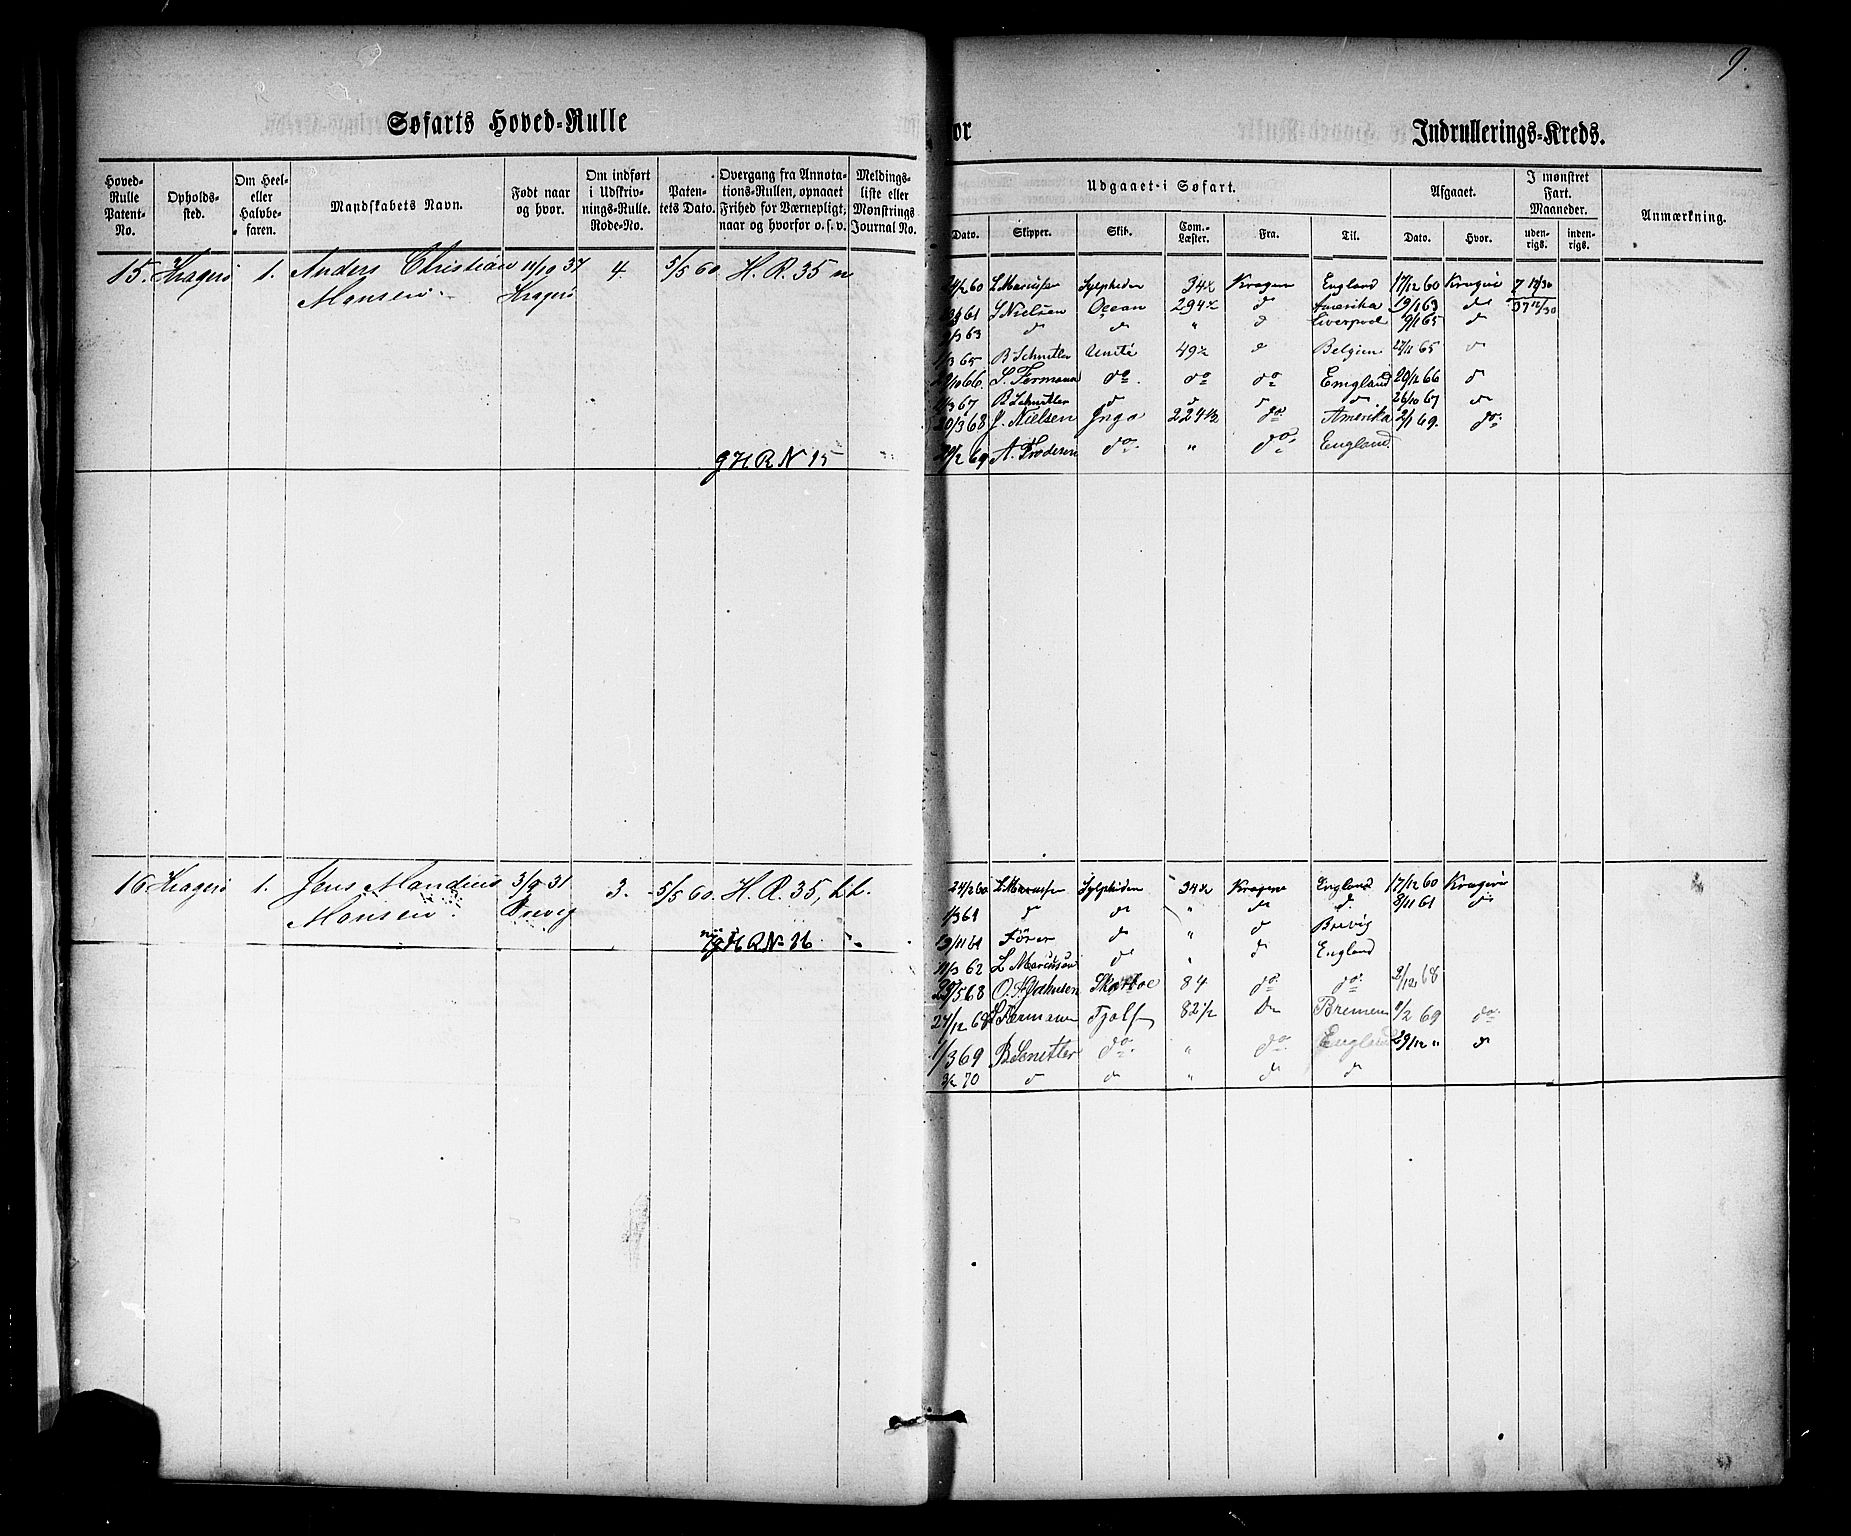 9.
Søfarts Hoved-Rulle
for Indrullerings-Kreds.
Hoved-Rulle Patent-No. | Opholds-sted. | Om Heel- eller Halvbe-faren. | Mandskabets Navn. | Født naar og hvor. | Om indført i Udskriv-nings-Rulle. Rode-No. | Paten-tets Dato. | Overgang fra Annota-tions-Rullen, opnaaet Frihed for Værnepligt; naar og hvorfor o. s. v. | Meldings-liste eller Mønstrings Journal No.
Udgaaet i Søfart. | Afgaaet. | I mønstret Fart. Maaneder. | Anmærkning.
Dato. | Skipper. | Skib. | Com.-Læster. | Fra. | Til. | Dato. | Hvor. | uden-rigs. | inden-rigs.
15. Kragerø 1. Anders Christian 11/10 37 4 5/5 60. H. R. 35
Hansen Kragerø
24/2 60 L. Marcussen Sylphiden 34½ Kragerø England 17/12 60 Kragerø
61 S Nielsen Ocean 294½ do Amerika 19/1 63 do
/3 63 do do " do Liverpool 9/1 65 do
1/3 65 B Schnitler Unité 49½ do Belgien 65 do
/10 66. S. Fermann do do do England 20/12 66 do
/3 67 B Schnitler do do do do 26/10 67 do
20/3 68 J. Nielsen Inga 224½ do Amerika 2/1 69. do
/2 69 do " do England
H R N 15
16 Kragerø 1. Jens Mandius 3/9 31 3. 5/5 60. H. R. 35,
Hansen Brevig
24/2 60 L. Marcussen Sylphiden 34½ Kragerø England 17/12 60 Kragerø
1/3 61 do do " do do 8/11 61 do
13/11 61 Fører do " do Brevig
ny H R No 16
11/3 62 L Marcussen do " do England
/5 68 84 do do /12 68
24/12 68 Fermann Fjolf 82½ do Bremen /2 69 do
1/3 69 B Snitler do " do England 29/12 " do
70 do do " do do